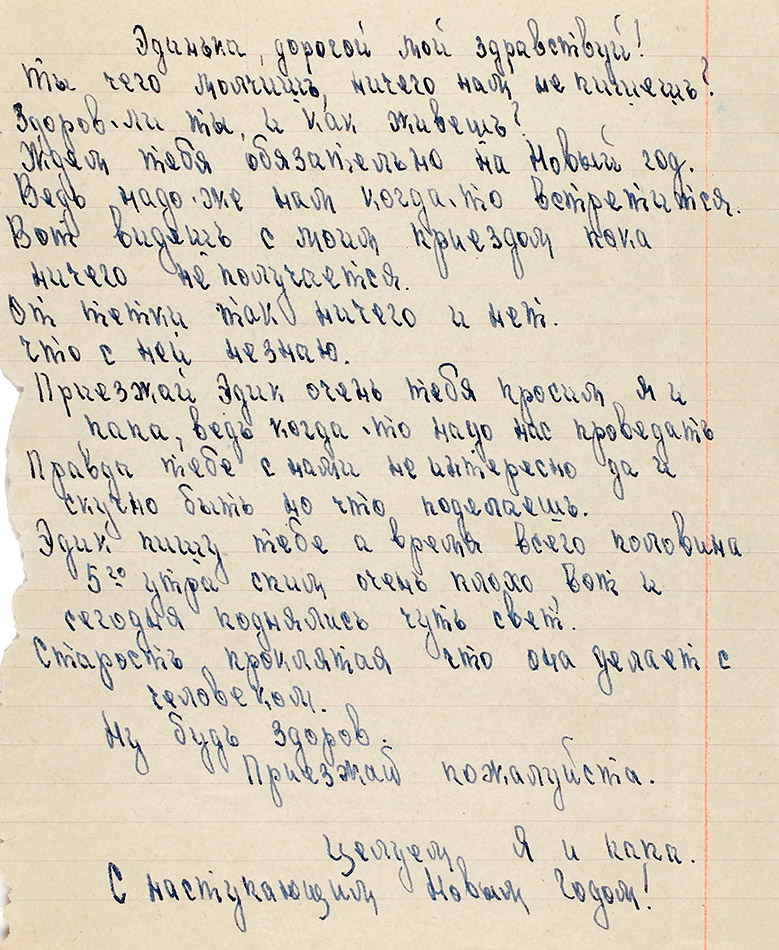 Эдинька, дорогой мой здравствуй!
Ты чего молчишь, ничего нам не пишешь?
Здоров-ли ты, и как живешь?
Ждем тебя обязательно на Новый год.
Ведь надо-же нам когда-то встретится.
Вот видишь с моим приездом пока
ничего не получается.
От тетки так ничего и нет.
Что с ней незнаю.
Приезжай Эдик очень тебя просим я и
папа, ведь когда-то надо нас проведать
Правда тебе с нами не интересно да и
скучно быть но что поделаешь.
Эдик пишу тебе а время всего половина
5го утра спим очень плохо, вот и
сегодня поднялись чуть свет.
Старость проклятая что она делает с
человеком.
Ну будь здоров.
Приезжай пожалуйста.
Целуем я и папа.
С наступающим Новым Годом!